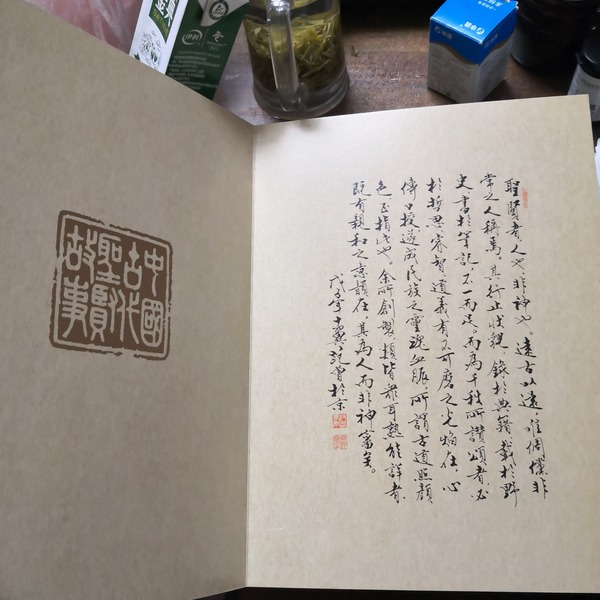 中國
古代
聖賢
故事
聖賢者人也非神也。遠古以還唯倜儻非
常之人稱焉。其行止狀貌錄於典籍載於野
史書於筆記不一而足。而為千秋所讚頌者必
於哲思睿智道義有不可磨之光焰在。心
傳口授遂成民族之靈魂血脈。所謂古道照顏
色正指此也。余所創製類皆耳熟能詳者
既有親和之意韻在。其為人而非神審矣。
戊子冬十翼范曾於京
伊利